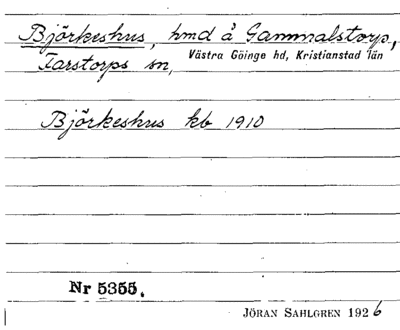 Björkeshus, hmd å Gammalstorp,
Farstorps sn, Västra Göinge hd, Kristianstad län
Björkeshus kb 1910
Nr 5355.
JÖRAN SAHLGREN 1926